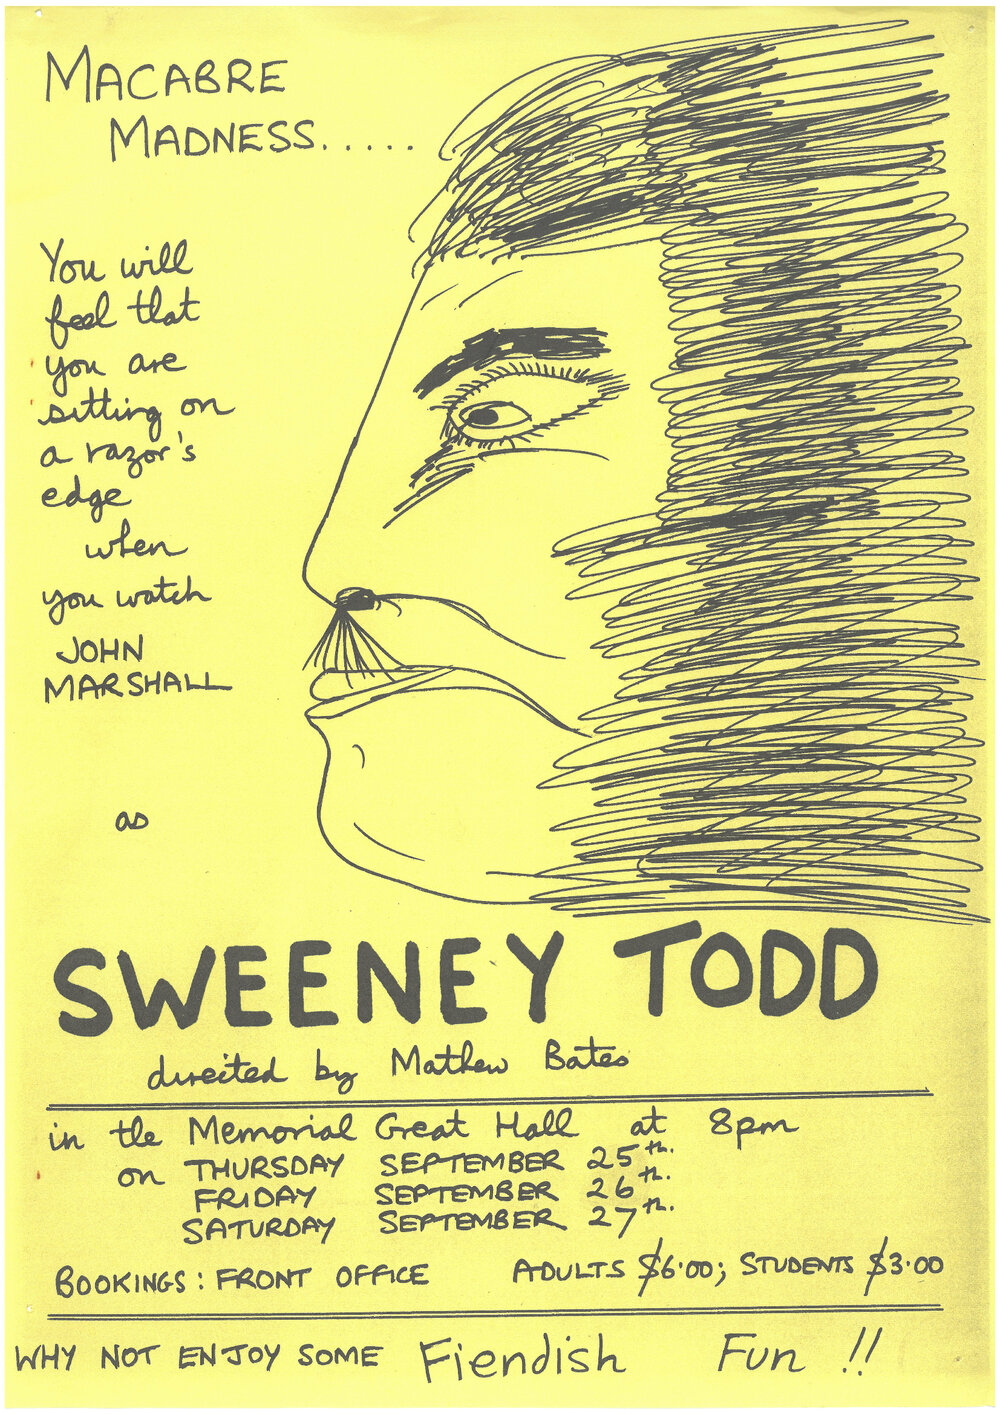 MACABRE
MADNESS.....
You will
feel that
you are
sitting on
a razor's
edge
when
you watch
JOHN
MARSHALL
as
SWEENEY TODD
directed by Mathew Bates
in the Memorial Great Hall at 8pm
on THURSDAY SEPTEMBER 25th.
FRIDAY SEPTEMBER 26th.
SATURDAY SEPTEMBER 27th.
BOOKINGS: FRONT OFFICE ADULTS $6.00; STUDENTS $3.00
WHY NOT ENJOY SOME Fiendish Fun !!